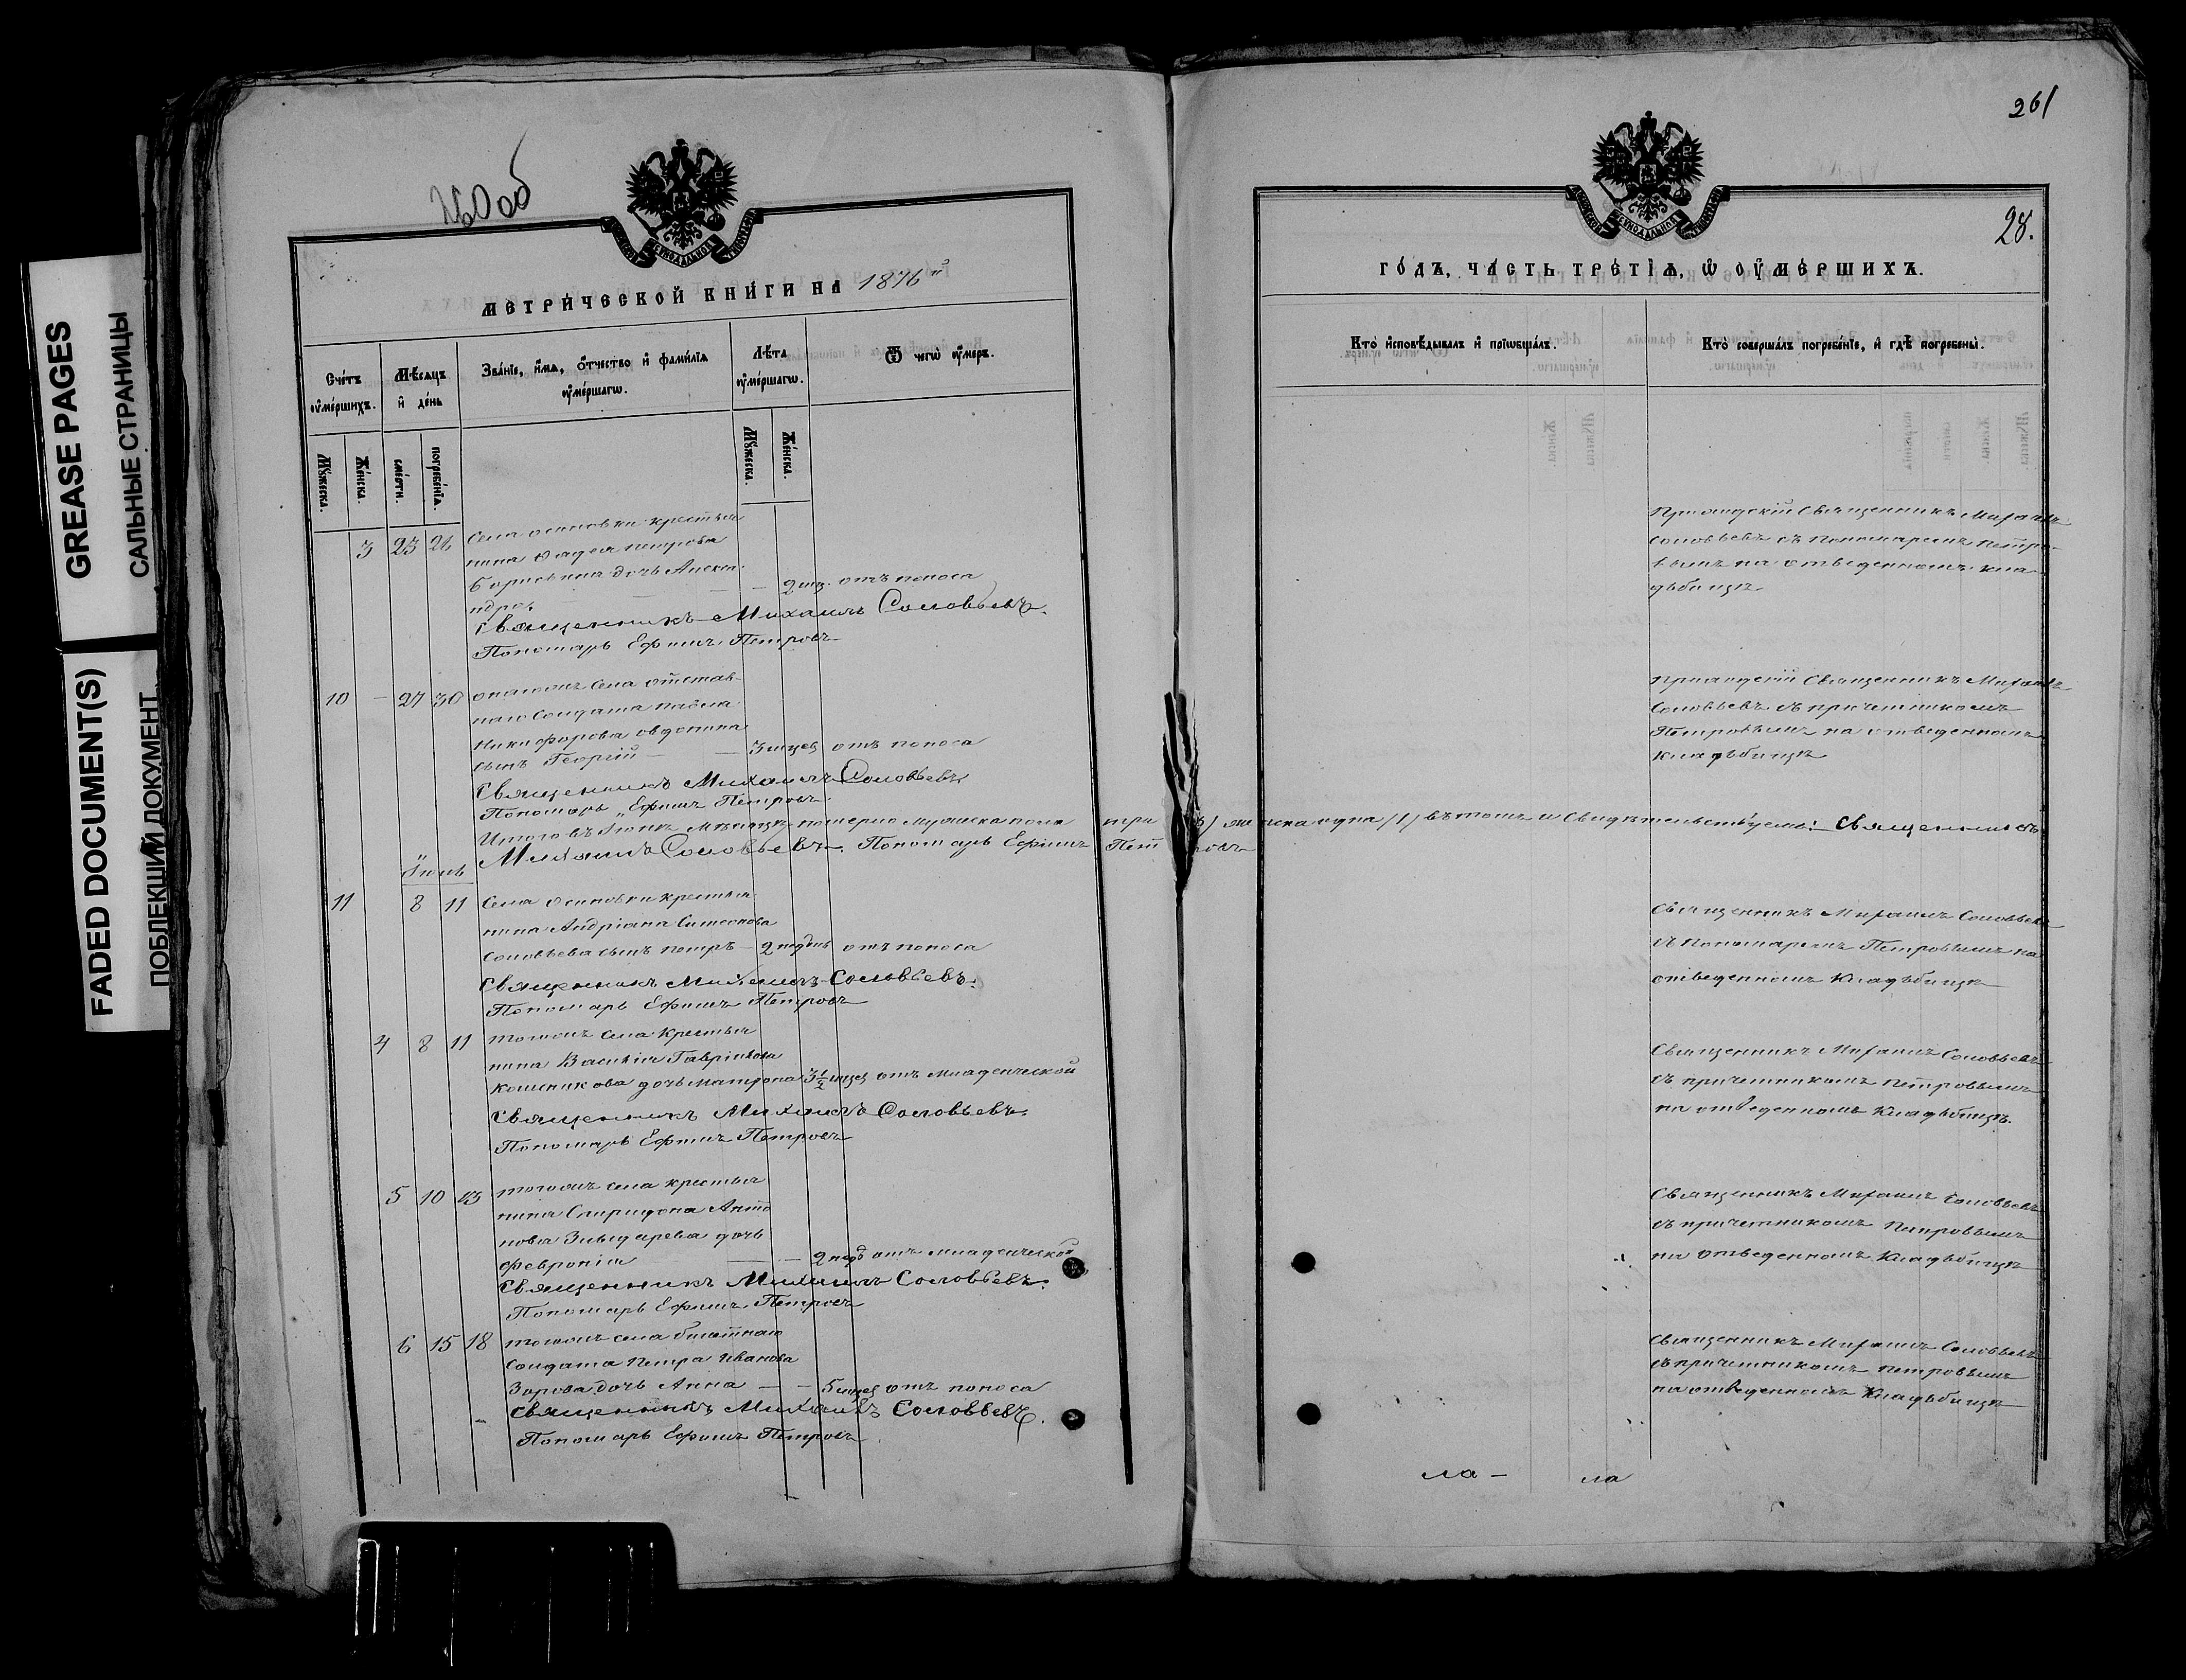 GREASE PAGES
САЛЬНЫЕ СТРАНИЦЫ
FADED DOCUMENT(S)
ПОБЛЕКШИЙ ДОКУМЕНТ
260об
МЕТРИЧЕСКОЙ КНИГИ НА 1876й
Счетъ оумершихъ.
Мѣсяцъ и день
Званіе, имя, отчество и фамилія оумершагω.
Лѣта оумершагω.
Ѿ чегω оумеръ.
Мужеска.
Женска.
смерти.
погребенія.
Мужеска.
Женска.
3 23 26 Села Осиновки крестья
нина Фадея Петрова
дочь Алекса
ндра — — — 2 мц. отъ поноса
Священникъ Михаилъ Соловьевъ.
Пономарь Ефимъ Петровъ
10 — 27 30 Села отстав
наго Солдата Павла
Никифорова
сынъ Георгій — — 3 мцев отъ поноса
Священникъ Михаилъ Соловьевъ
Пономарь Ефимъ Петровъ.
Итого въ Іюнѣ Мѣсяцѣ померло мужеска пола три (3) женска одна (1) въ томъ и свидѣтельствуемъ: Священникъ
Михаилъ Соловьевъ. Пономарь Ефимъ Петровъ
Іюль
11 8 11 Села Осиновки крестья
нина Андріана Симеонова
Соловьева сынъ Петръ — 2 недѣль отъ поноса
Священникъ Михаилъ Соловьевъ.
Пономарь Ефимъ Петровъ
4 8 11 тогожъ села крестья
нина Василія Гаврилова
дочь Матрона 3½ мцев отъ младенческой
Священникъ Михаилъ Соловьевъ.
Пономарь Ефимъ Петровъ
5 10 13 тогожъ села крестья
нина Спиридона Анто
нова дочь
Февронія — — 2 нед отъ младенческой
Священникъ Михаилъ Соловьевъ.
Пономарь Ефимъ Петровъ
6 15 18 тогожъ села билетнаго
солдата Петра Иванова
Зорова дочь Анна — — 5 мцев отъ поноса
Священникъ Михаилъ Соловьевъ.
Пономарь Ефимъ Петровъ
261
28.
ГОДЪ, ЧАСТЬ ТРЕТІЯ, Ѡ ОУМЕРШИХЪ.
Кто исповѣдывалъ и пріωбщалъ.
Кто совершалъ погребеніе, и гдѣ погребены.
Приходскій Священникъ Михаилъ
Соловьевъ съ Пономаремъ Петро-
вымъ на отведенномъ кла-
дьбищѣ
Приходскій Священникъ Михаилъ
Соловьевъ съ причетникомъ
Петровымъ на отведенномъ
кладьбищѣ
Священникъ Михаилъ Соловьевъ
съ Пономаремъ Петровымъ на
отведенномъ кладьбищѣ
Священникъ Михаилъ Соловьевъ
съ причетникомъ Петровымъ
на отведенномъ кладьбищѣ.
Священникъ Михаилъ Соловьевъ
съ причетникомъ Петровымъ
на отведенномъ кладьбищѣ
Священникъ Михаилъ Соловьевъ
съ причетникомъ Петровымъ
на отведенномъ кладьбищѣ
ла — ла